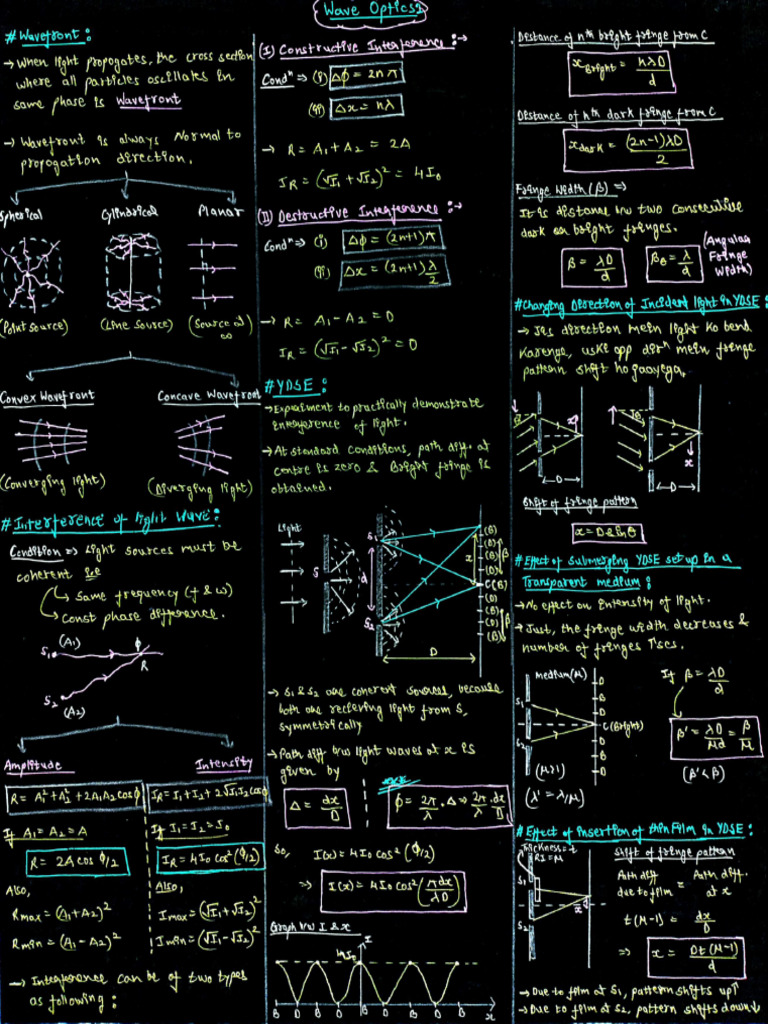 Wave Optics
# Wavefront :
→ When light propogates, the cross section
where all particles oscillates in
same phase is Wavefront
→ Wavefront is always Normal to
propogation direction.
Spherical Cylindrical Planar
(Point source) (Line source) (Source at ∞)
Convex Wavefront Concave Wavefront
(Converging light) (Diverging light)
# Interference of light Wave :
Condition ⇒ Light sources must be
coherent ie
↳ same frequency (f & ω)
↳ const phase difference.
S₁ (A₁) ϕ
R
S₂ (A₂)
Amplitude Intensity
R = A₁² + A₂² + 2A₁A₂cosϕ
IR = I₁ + I₂ + 2√I₁I₂cosϕ
If A₁ = A₂ = A
If I₁ = I₂ = I₀
R = 2A cos ϕ/2
IR = 4I₀ cos² (ϕ/2)
Also,
Also,
Rmax = (A₁+A₂)²
Imax = (√I₁+√I₂)²
Rmin = (A₁-A₂)²
Imin = (√I₁-√I₂)²
→ Interference can be of two types
as following :
(I) Constructive Interference :→
Condⁿ ⇒ (i) Δϕ = 2nπ
(ii) Δx = nλ
→ R = A₁ + A₂ = 2A
IR = (√I₁ + √I₂)² = 4I₀
(II) Destructive Interference :→
Condⁿ ⇒ (i) Δϕ = (2n+1)π
(ii) Δx = (2n+1) λ/2
→ R = A₁ - A₂ = 0
IR = (√I₁ - √I₂)² = 0
# YDSE :
→ Experiment to practically demonstrate
interference of light.
→ At standard conditions, path diff. at
centre is zero & Bright fringe is
obtained.
Light
S
S₁
d
S₂
x
D
(B)
(D)
(B) β
(D)
C(B)
(D)
(B)
(D) β
(B)
→ S₁ & S₂ are coherent sources, because
both are recieving light from S,
symmetrically
→ Path diff b/w light waves at x is
given by
Δ = dx/D
ϕ = 2π/λ . Δ ⇒ 2π/λ . dx/D
So, I(x) = 4I₀ cos² (ϕ/2)
⇒ I(x) = 4I₀ cos² (πdx/λD)
Graph b/w I & x
4I₀ I
B D B D B D B D B x
Distance of nᵗʰ bright fringe from C
xBright = nλD/d
Distance of nᵗʰ dark fringe from C
xdark = (2n-1)λD/2
Fringe Width (β) ⇒
It is distance b/w two consecutive
dark or bright fringes.
β = λD/d
βθ = λ/d
(Angular
Fringe
Width)
# Changing Direction of Incident light in YDSE :
→ Jis direction mein light ko bend
karenge, uski opp dirⁿ mein fringe
pattern shift ho jaayega.
θ x
←D→
θ x
←D→
Shift of fringe pattern
x = D sinθ
# Effect of submerging YDSE set up in a
Transparent medium :
→ No effect on Intensity of light.
→ Just, the fringe width decreases &
number of fringes ↑ses.
medium (μ)
S₁
S₂
D
B
D
C (Bright)
D
B
D
(μ>1)
(λ' = λ/μ)
If β = λD/d
β' = λD/μd = β/μ
(β' < β)
# Effect of insertion of thin Film in YDSE :
Thickness = t
RI = μ
S₁
S₂
x
d
Shift of fringe pattern
Path diff due to film = Path diff. at x
t(μ-1) = dx/D
⇒ x = Dt(μ-1)/d
→ Due to film at S₁, pattern shifts up↑
→ Due to film at S₂, pattern shifts down↓